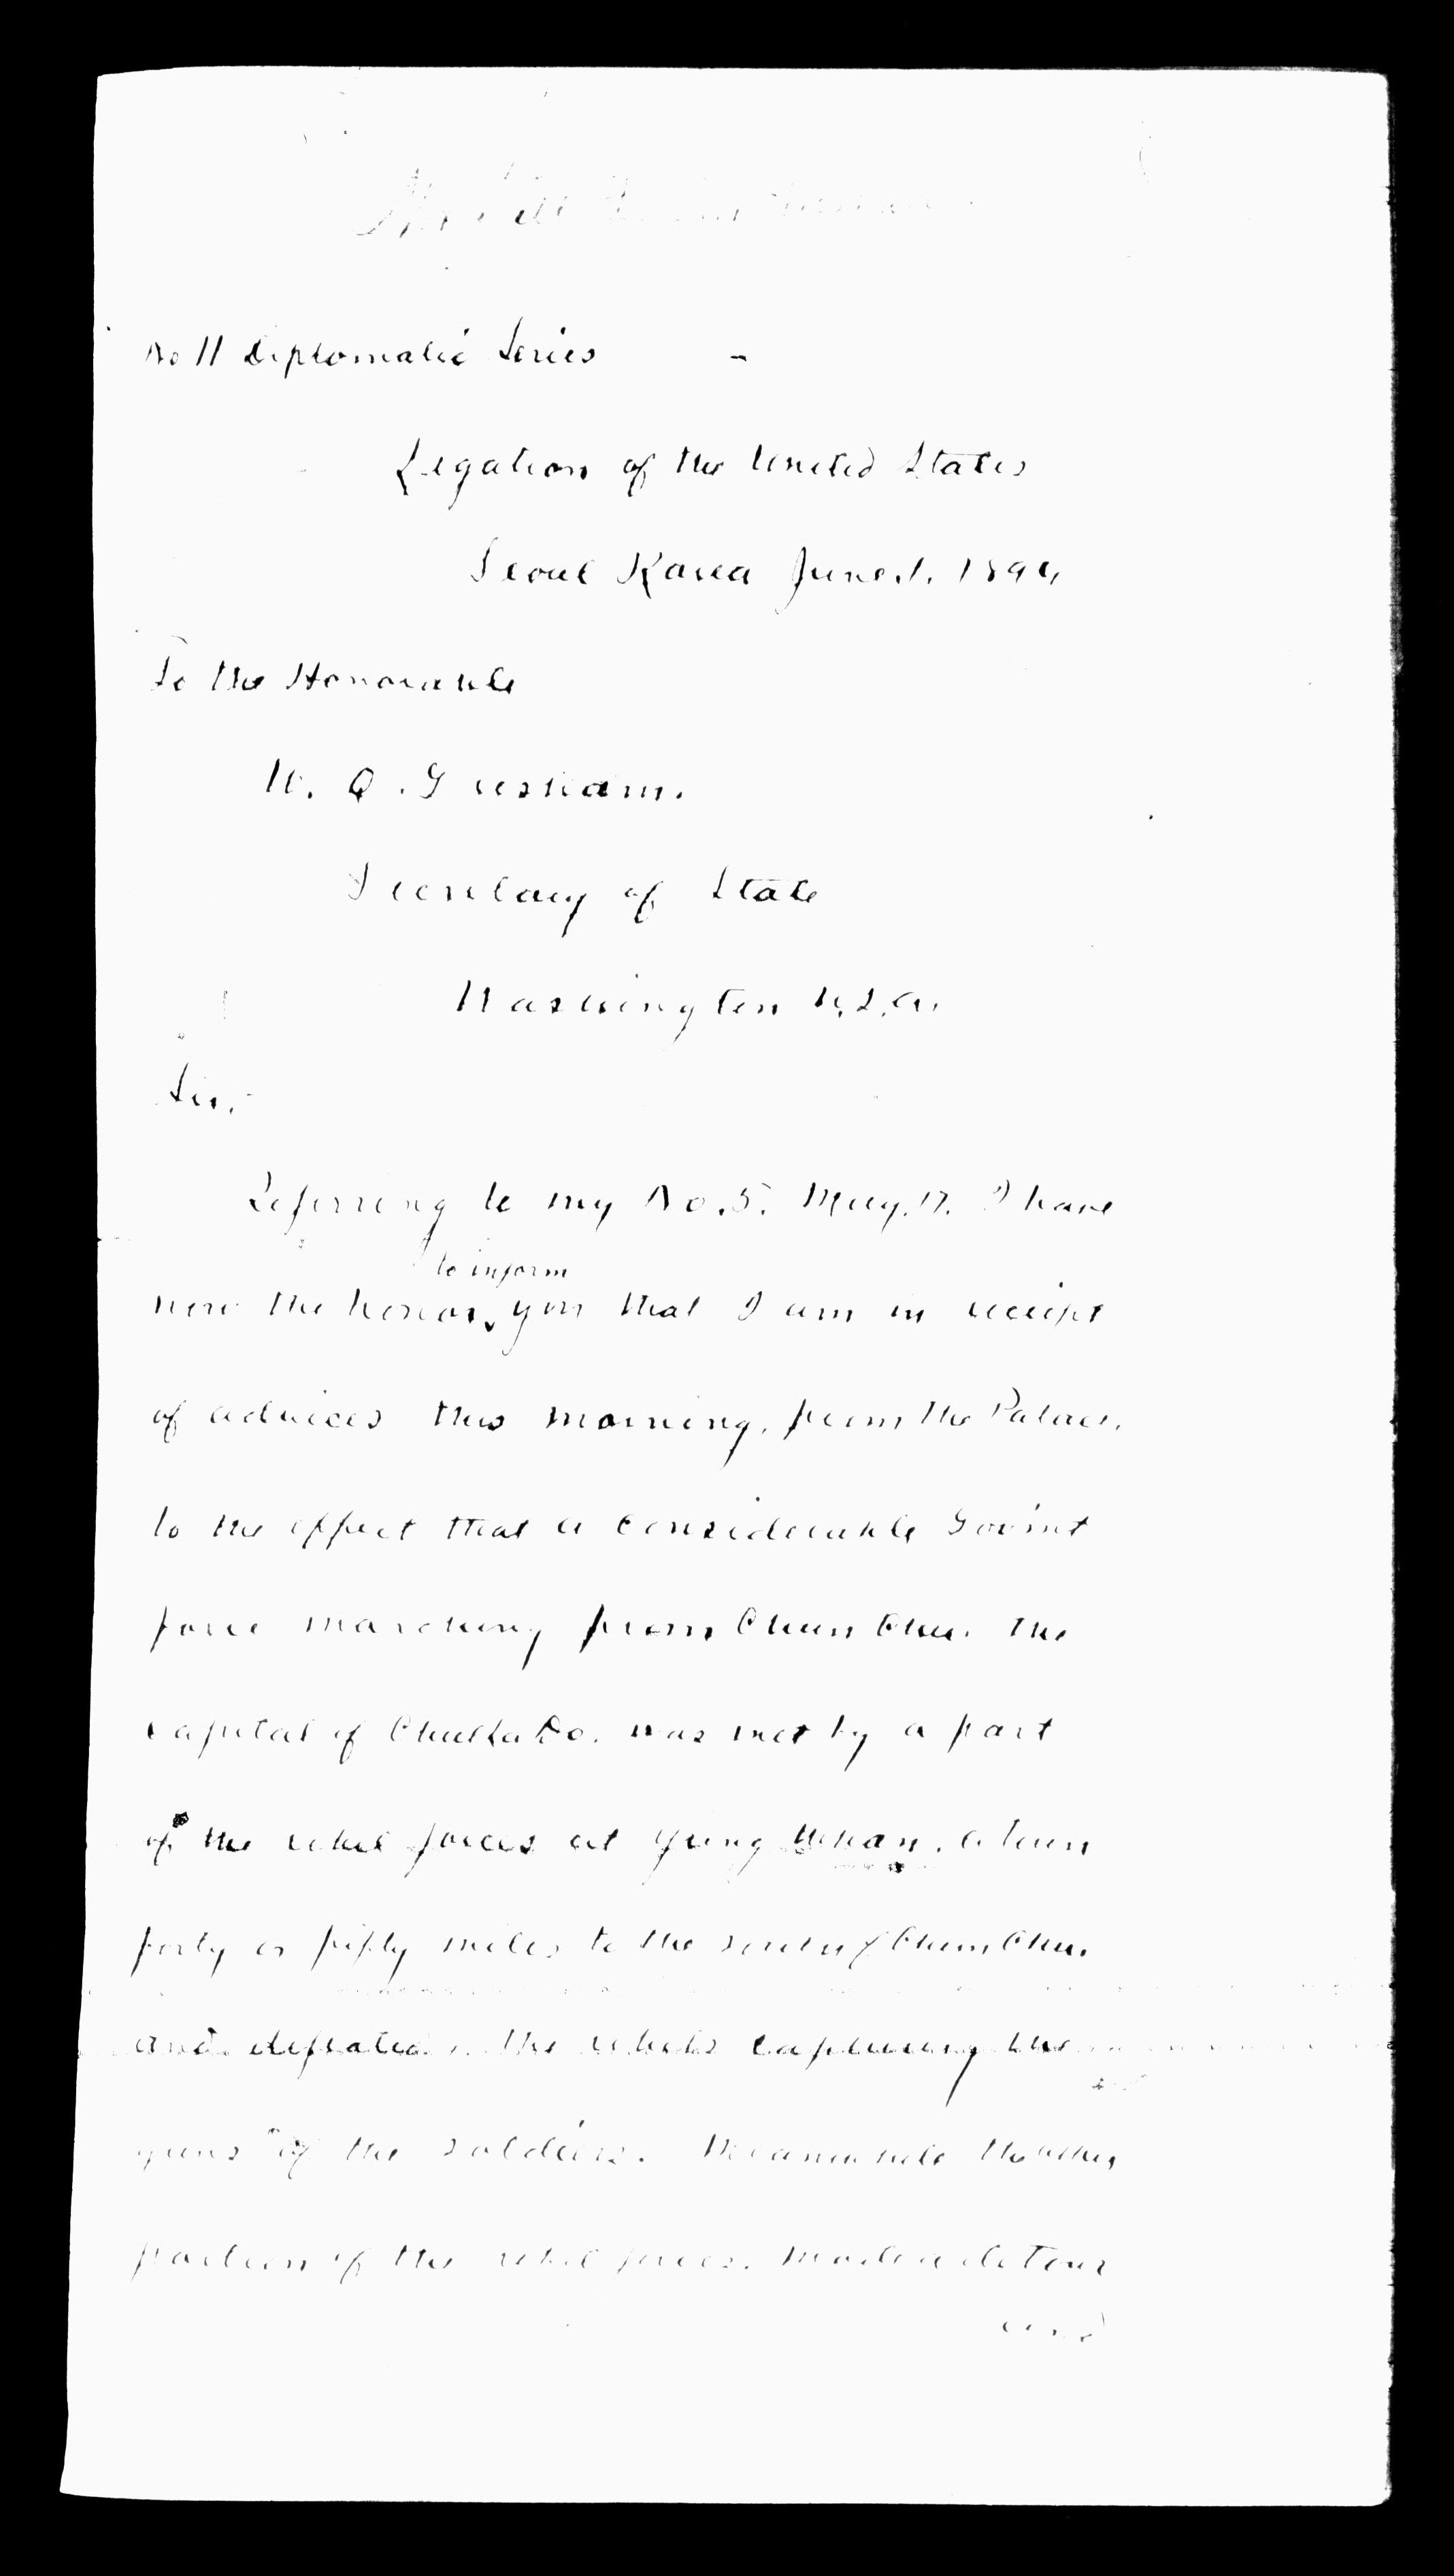 No 11 Diplomatic Series -
Legation of the United States
Seoul Korea June. 1. 1894
To the Honorable
W. Q. Gresham.
Secretary of State
Washington U.S.A.
Sir,
Referring to my No. 5. May. 17. I have
to inform
now the honor, you that I am in receipt
of advices this morning, from the Palace.
to the effect that a considerable Gov'mt
force marching from Chun Chu. the
capital of Chulla Do. was met by a part
of the rebel forces at Yung Whan. a town
forty or fifty miles to the south of Chun Chu.
and defeated. the rebels capturing the
guns of the soldiers. Meanwhile the other
portion of the rebel forces. made a detour
and